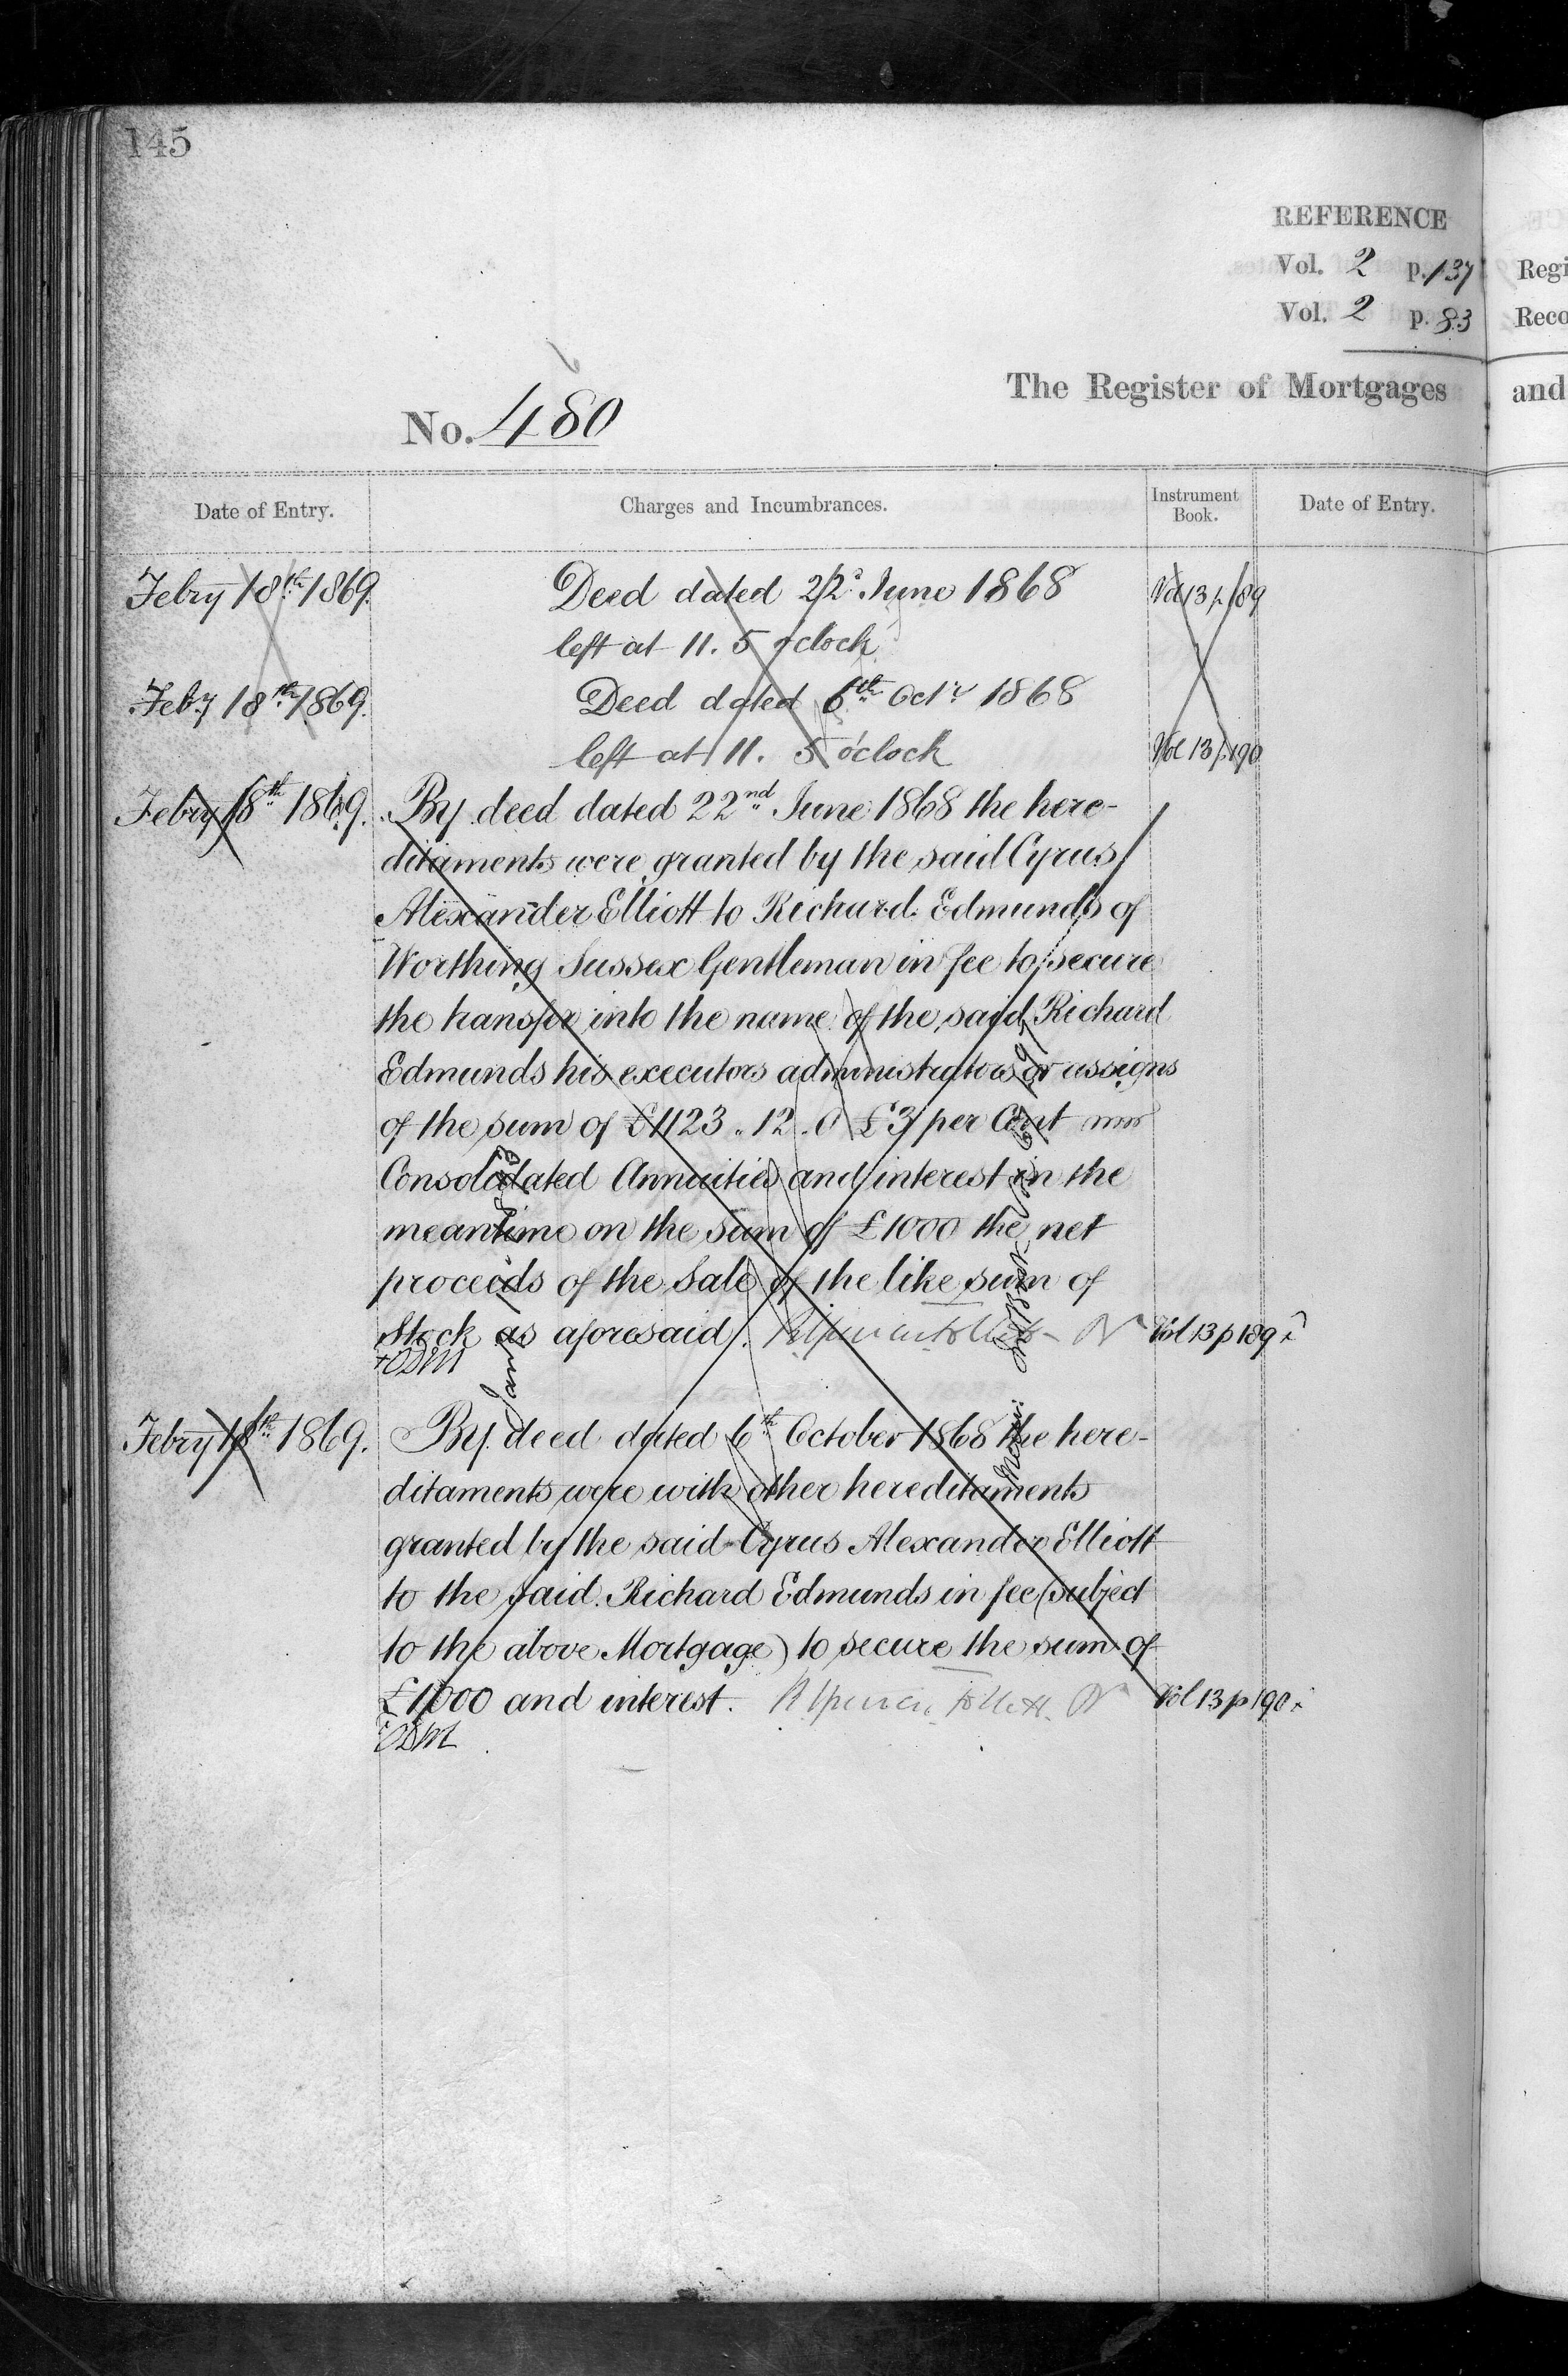 145
REFERENCE
Vol. 2 p. 137
Vol. 2 p. 83
Regi
Reco
The Register of Mortgages
and
No. 480
Date of Entry.
Charges and Incumbrances.
Instrument
Book.
Date of Entry.
Febry 18th 1869. Deed dated 22d June 1868 Vol 13 p 189
left at 11. 5 o'clock
Feby 18th 1869. Deed dated 6th Octr 1868
left at 11. 5 o'clock Vol 13 p 190
Febry 18th 1869. By deed dated 22nd June 1868 the here-
ditaments were granted by the said Cyrus
Alexander Elliott to Richard Edmunds of
Worthing Sussex Gentleman in fee to secure
the transfer into the name of the said Richard
Edmunds his executors administrators or assigns
of the sum of £1123 „ 12 „ 0 £3 per Cent
Consolidated Annuities and interest in the
meantime on the sum of £1000 the net
proceeds of the Sale of the like sum of
Stock as aforesaid. Vol 13 p 189
Febry 18th 1869. By deed dated 6th October 1868 the here-
ditaments were with other hereditaments
granted by the said Cyrus Alexander Elliott
to the said Richard Edmunds in fee (subject
to the above Mortgage) to secure the sum of
£1000 and interest. Vol 13 p 190